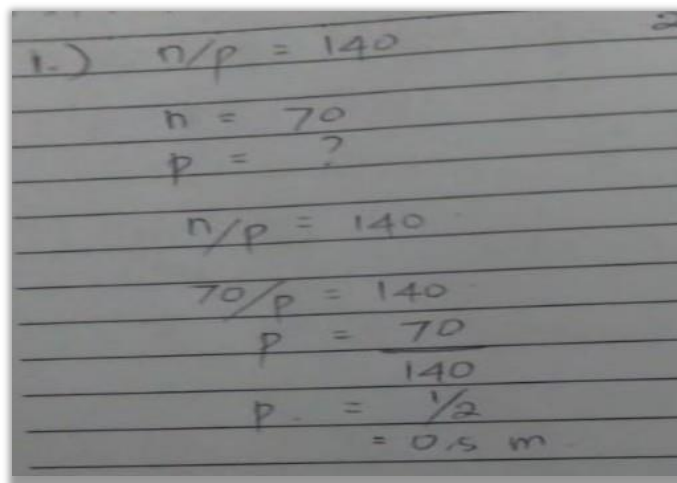 1.) n/p = 140
n = 70
p = ?
n/p = 140
70/p = 140
p = 70
140
p. = 1/2
= 0.5 m